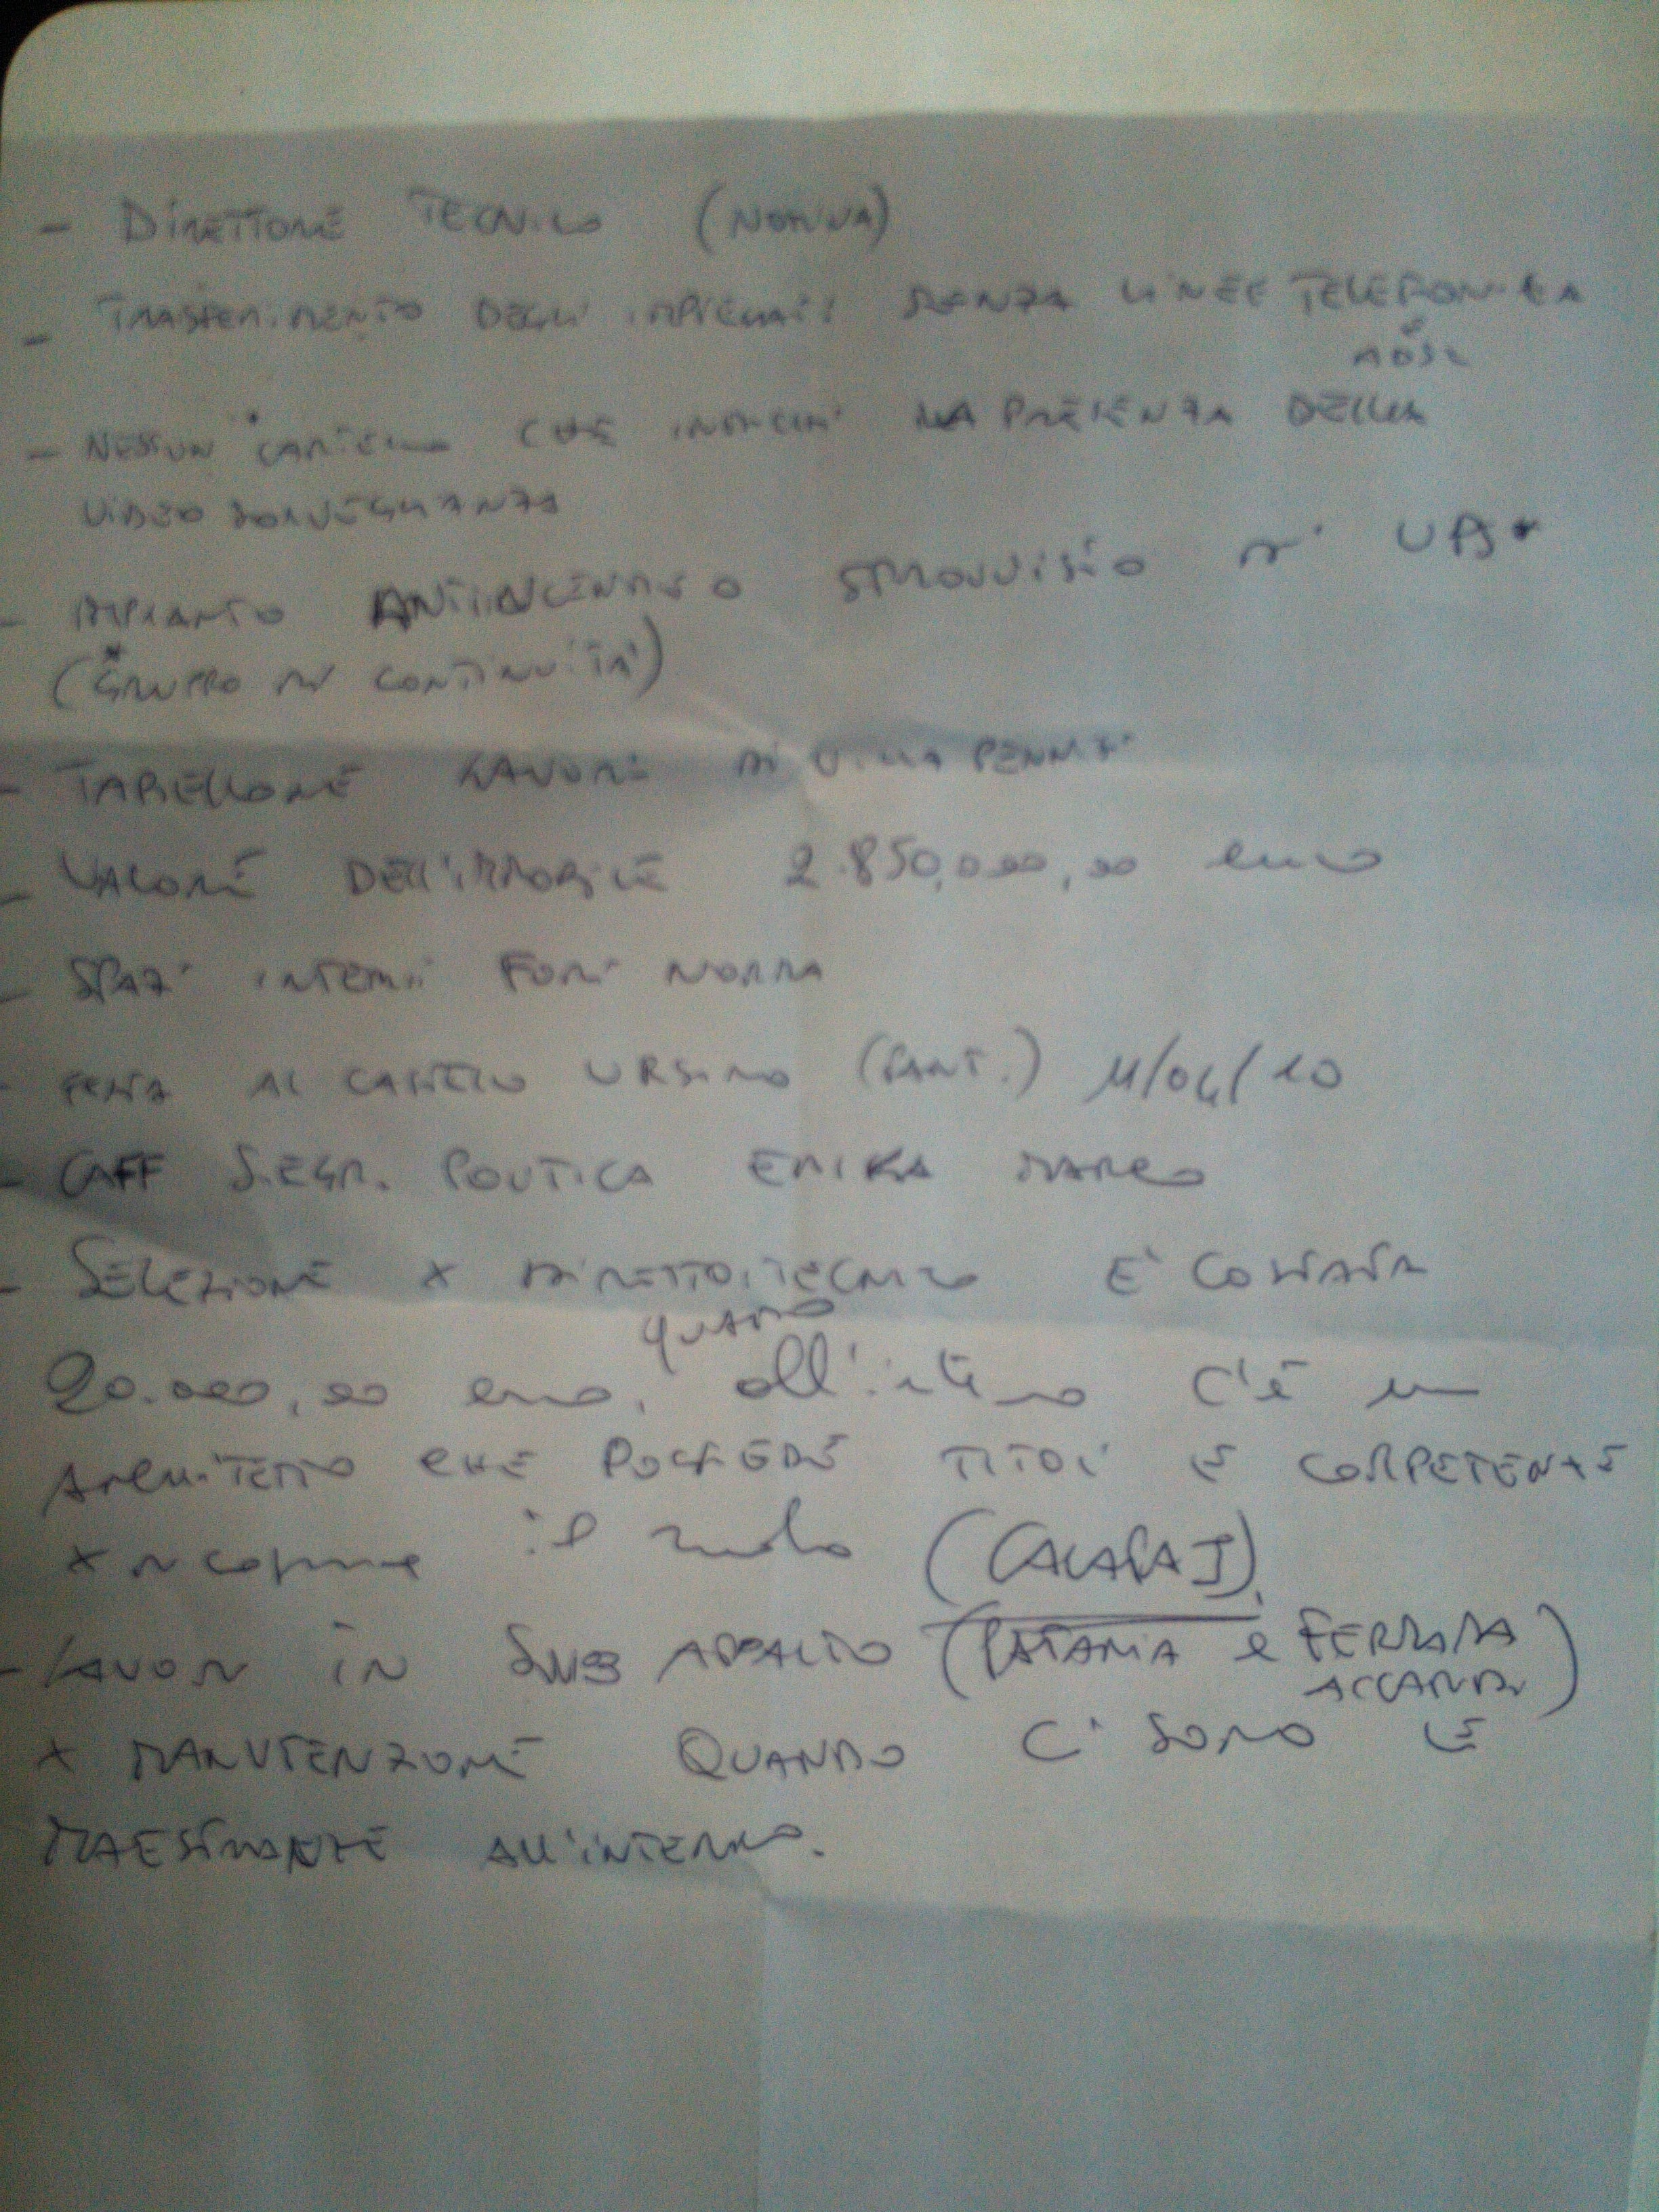 - DIRETTORE TECNICO (NORMA)
- TRASFERIMENTO DEGLI IMPIEGATI SENZA LINEE TELEFONI EA
ADSL
- NESSUN CARTELLO CHE INDICHI LA PRESENZA DELLA
VIDEO SORVEGLIANZA
- IMPIANTO ANTINCENDIO SPROVVISTO DI UPS*
(*GRUPPO DI CONTINUITÀ)
- TABELLONE LAVORI DI VILLA PENNISI
- VALORE DELL'IMMOBILE 2.850,000,00 euro
- SPAZI INTERNI FORI NORMA
- FESTA AL CASTELLO URSINO (SANT.) 11/04/10
- CAFF SEGR. POLITICA ERIKA MARCO
- SELEZIONE X DIRETTO. TECNICO E' COSTATA
20.000,00 euro, QUANDO all'interno C'È un
ARCHITETTO CHE POSSIEDE TITOLI E COMPETENZE
X ricoprire il ruolo (CALAPAJ).
- LAVORI IN SUB APPALTO (PATANIA e FERRARA
ACCARDI)
X MANUTENZIONE QUANDO CI SONO LE
MAESTRANZE ALL'INTERNO.